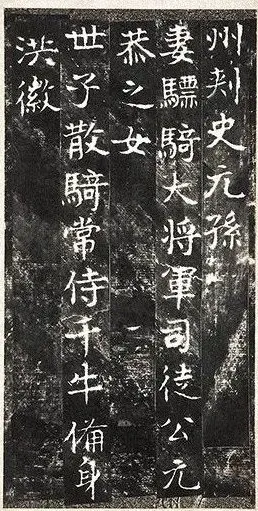 州刾史元孫
妻驃騎大将軍司徒公元
恭之女
世子散騎常侍千牛俻身
洪徽